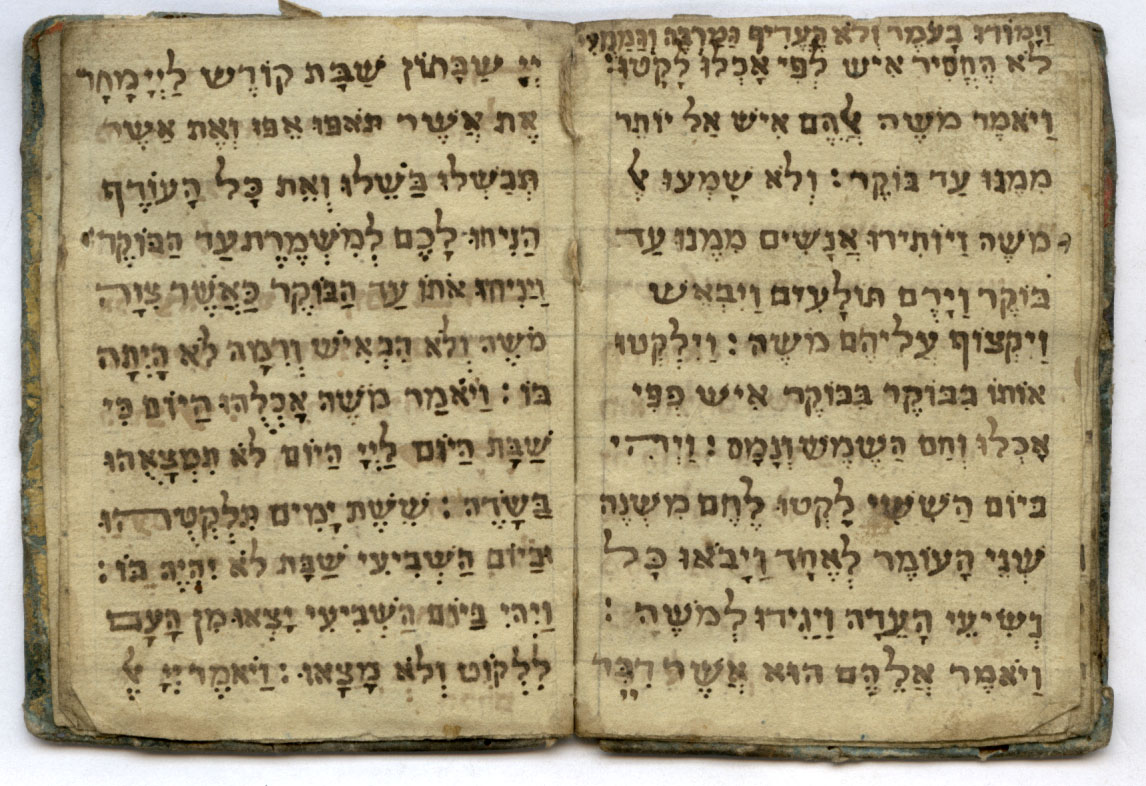 וַיָּמוֹדּוּ בָעֹמֶר וְלֹא הֶעֱדִיף הַמַרְבֶּה וְהַמַמְעִיט
לֹא הֶחֱסִיר אִישׁ לְפִי אָכְלוֹ לָקָטוּ:
וַיֹאמֶר מֹשֶׁה אֲלֵהֶם אִישׁ אַל יוֹתֵר
מִמֶנוּ עַד בּוֹקֶר: וְלֹא שָׁמְעוּ אֶל
מֹשֶׁה וַיוֹתִירוּ אֲנָשִׁים מִמֶנוּ עַד
בּוֹקֶר וַיָרֶם תּוֹלָעִים וַיִבְאַשׁ
וַיִקְצוֹף עֲלֵיהֶם מֹשֶׁה: וַיִלְקְטוּ
אוֹתוֹ בַּבּוֹקֶר בַּבּוֹקֶר אִישׁ כְּפִי
אָכְלוֹ וְחַם הַשֶׁמֶשׁ וְנָמָס: וַיְהִי
בַּיוֹם הַשִׁשִׁי לָקְטוּ לֶחֶם מִשְׁנֶה
שְׁנֵי הָעוֹמֶר לְאֶחָד וַיָבֹאוּ כָּל
נְשִׂיאֵי הָעֵדָה וַיַגִידוּ לְמֹשֶׁה:
וַיֹאמֶר אֲלֵהֶם הוּא אֲשֶׁר דִבֶּר
יְיָ שַׁבָּתוֹן שַׁבָּת קוֹדֶשׁ לַיְיָ מָחָר
אֶת אֲשֶׁר תֹאפוּ אֵפוּ וְאֶת אֲשֶׁר
תְבַשְׁלוּ בַּשֵׁלוּ וְאֶת כָּל הָעוֹדֶף
הַנִיחוּ לָכֶם לְמִשְׁמֶרֶת עַד הַבּוֹקֶר:
וַיַנִיחוּ אֹתוֹ עַד הַבּוֹקֶר כַּאֲשֶׁר צִוָה
מֹשֶׁה וְלֹא הִבְאִישׁ וְרִמָה לֹא הָיְתָה
בּוֹ: וַיֹאמֶר מֹשֶׁה אִכְלֻהוּ הַיוֹם כִּי
שַׁבָּת הַיוֹם לַיְיָ הַיוֹם לֹא תִמְצָאֻהוּ
בַּשָׂדֶה: שֵׁשֶׁת יָמִים תִּלְקְטֻהוּ
וּבַיוֹם הַשְׁבִיעִי שַׁבָּת לֹא יִהְיֶה בּוֹ:
וַיְהִי בַּיוֹם הַשְׁבִיעִי יָצְאוּ מִן הָעָם
לִלְקוֹט וְלֹא מָצָאוּ: וַיֹאמֶר יְיָ אֶל